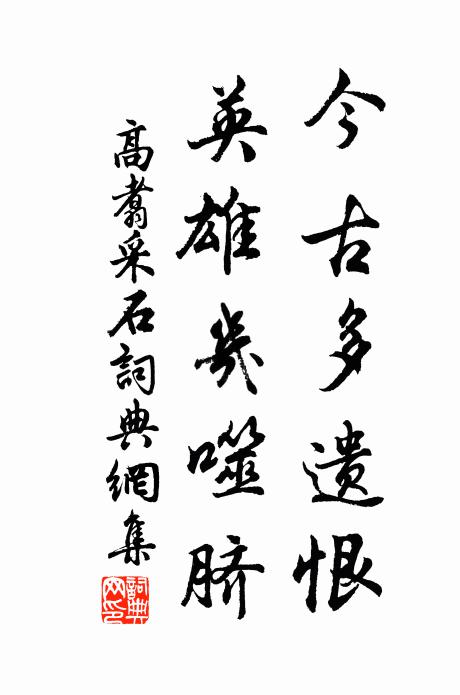 今古多遺恨
英雄幾噬臍
高翥采石詞典網集
詞典
网印